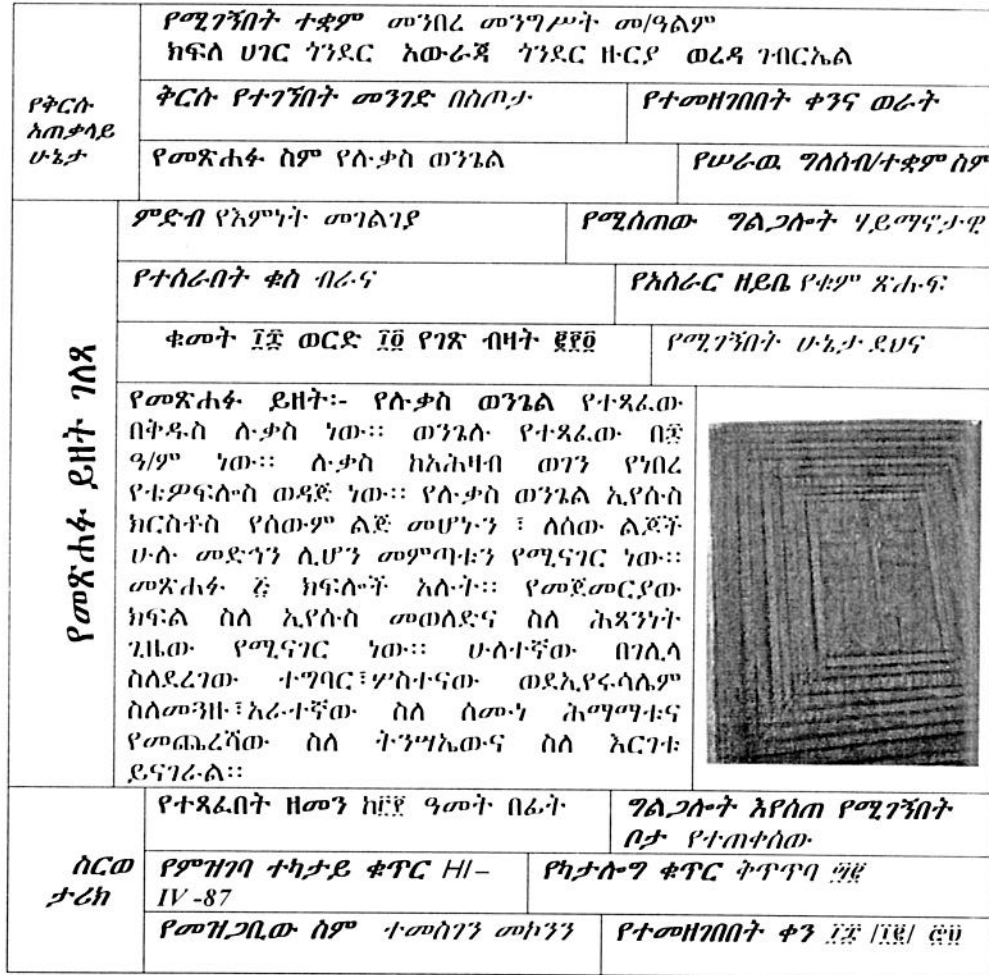 የሚገኝበት ተቋም መንበረ መንግሥት መ/ዓልም
ክፍለ ሀገር ጎንደር አውራጃ ጎንደር ዙርያ ወረዳ ገብርኤል
የቅርሱ አጠቃላይ ሁኔታ
ቅርሱ የተገኝበት መንገድ በስጦታ
የተመዘገበበት ቀንና ወራት
የመጽሐፉ ስም የሉቃስ ወንጌል
የሠራዉ ግለሰብ/ተቋም ስም
የመጽሐፉ ይዘት ገለጻ
ምድብ የእምነት መገልገያ
የሚሰጠው ግልጋሎት ሃይማኖታዊ
የተሰራበት ቁስ ብራና
የአሰራር ዘይቤ የቁም ጽሑፍ
ቁመት ፲፰ ወርድ ፲፬ የገጽ ብዛት
የሚገኝበት ሁኔታ ደህና
የመጽሐፉ ይዘት፡- የሉቃስ ወንጌል የተጻፈው
በቅዱስ ሉቃስ ነው። ወንጌሉ የተጻፈው
ዓ/ም ነው። ሉቃስ ከአሕዛብ ወገን የነበረ
የቴዎፍሎስ ወዳጅ ነው። የሉቃስ ወንጌል ኢየሱስ
ክርስቶስ የሰውም ልጅ መሆኑን ፣ ለሰው ልጆች
ሁሉ መድኅን ሊሆን መምጣቱን የሚናገር ነው።
መጽሐፉ ፭ ክፍሎች አሉት። የመጀመርያው
ክፍል ስለ ኢየሱስ መወለድና ስለ ሕጻንነት
ጊዜው የሚናገር ነው። ሁለተኛው በገሊላ
ስለደረገው ተግባር፣ሦስተናው ወደኢየሩሳሌም
ስለመጓዙ፣አራተኛው ስለ ሰሙነ ሕማማቱና
የመጨረሻው ስለ ትንሣኤውና ስለ እርገቱ
ይናገራል።
ስርወ ታሪክ
የተጻፈበት ዘመን ዓመት በፊት
ግልጋሎት እየሰጠ የሚገኝበት
ቦታ የተጠቀሰው
የምዝገባ ተካታይ ቁጥር HI-
IV -87
የካታሎግ ቁጥር ቅጥጥባ
የመዝጋቢው ስም ተመስገን መኮንን
የተመዘገበበት ቀን